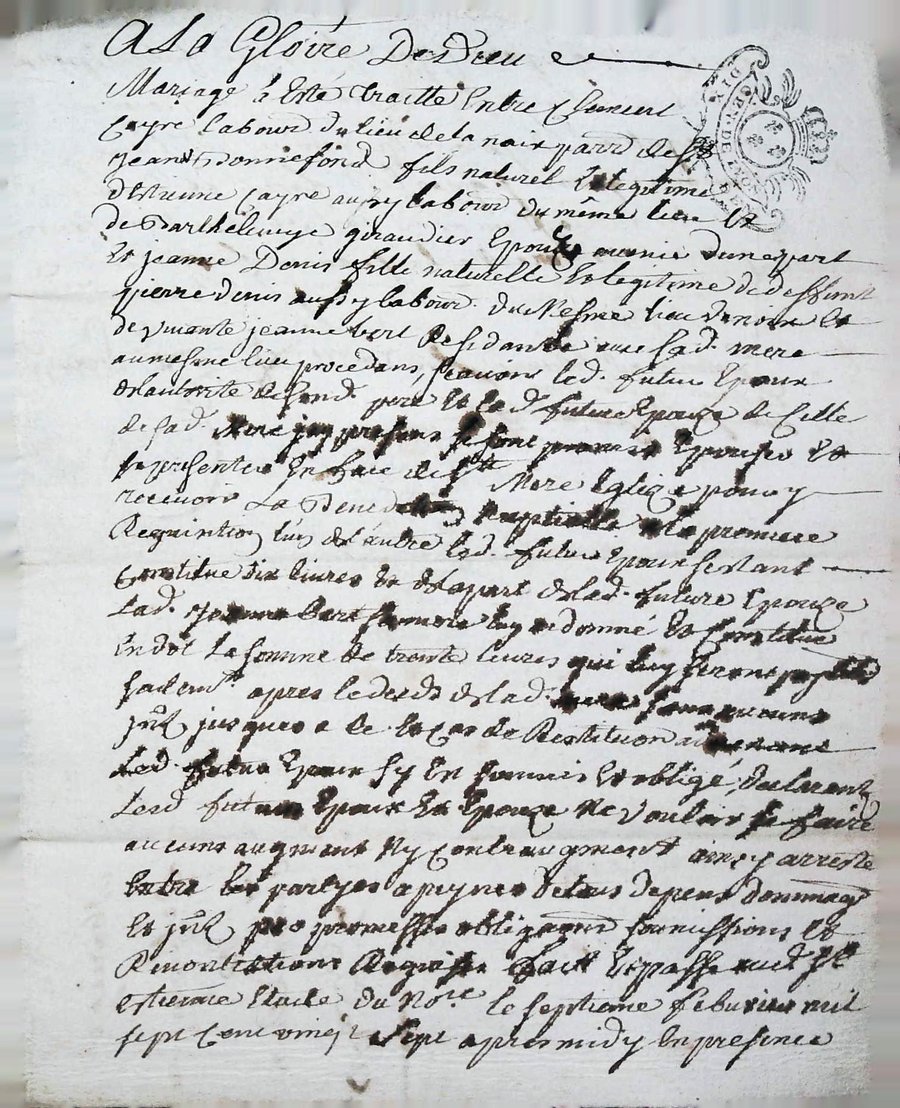 A La Gloire De Dieu
Mariage à Esté traitté Entre Clement
Cayre labour du lieu de la noir parr de St
Jean Bonnefond fils naturel Et legitime
d'Estienne Cayre aussy labour du même lieu Et
de Barthelemye giraudier Epouze d'une part
Et jeanne Denis fille naturelle Et legitime de deffunt
pierre denis aussy labour. du Mesme lieu de noir Et
de vivante jeanne bert Residante avec sad. mere
au mesme lieu procedans, sçavoir led. futur Epoux
de lautorité de sond. pere Et lad. future Epouze de Celle
de sad. Mere ont promis Epouser Et
se presenter En face de Ste Mere Eglize pour y
recevoir La Benediction nuptialle a la premiere
Requisition l'un de l'autre led. futur Epoux sestant
Constitué dix livres Et de la part de lad. future Epouze
lad. Jeanne bert sa mere luy a donné Et Constitué
En dot La somme de trente livres qui luy seront
apres le deceds de lad. mere sans aucuns
jnts jusques a ce Et Cas de Restitution
Led. futur Epoux sy Est soumis Et obligé, declarant
Lesd futurs Epoux Et Epouze Ne vouloir se faire
aucuns augment Ny Contraugment ainsy arresté
Entre les partyes a peynes de tous depens dommages
Et jnts par promesse obligaons soumissions Et
Renontiations Requises fait Et passé aud St
estienne Etude du Nore le septieme febvrier mil
sept Cent vingt sept apres midy En presence